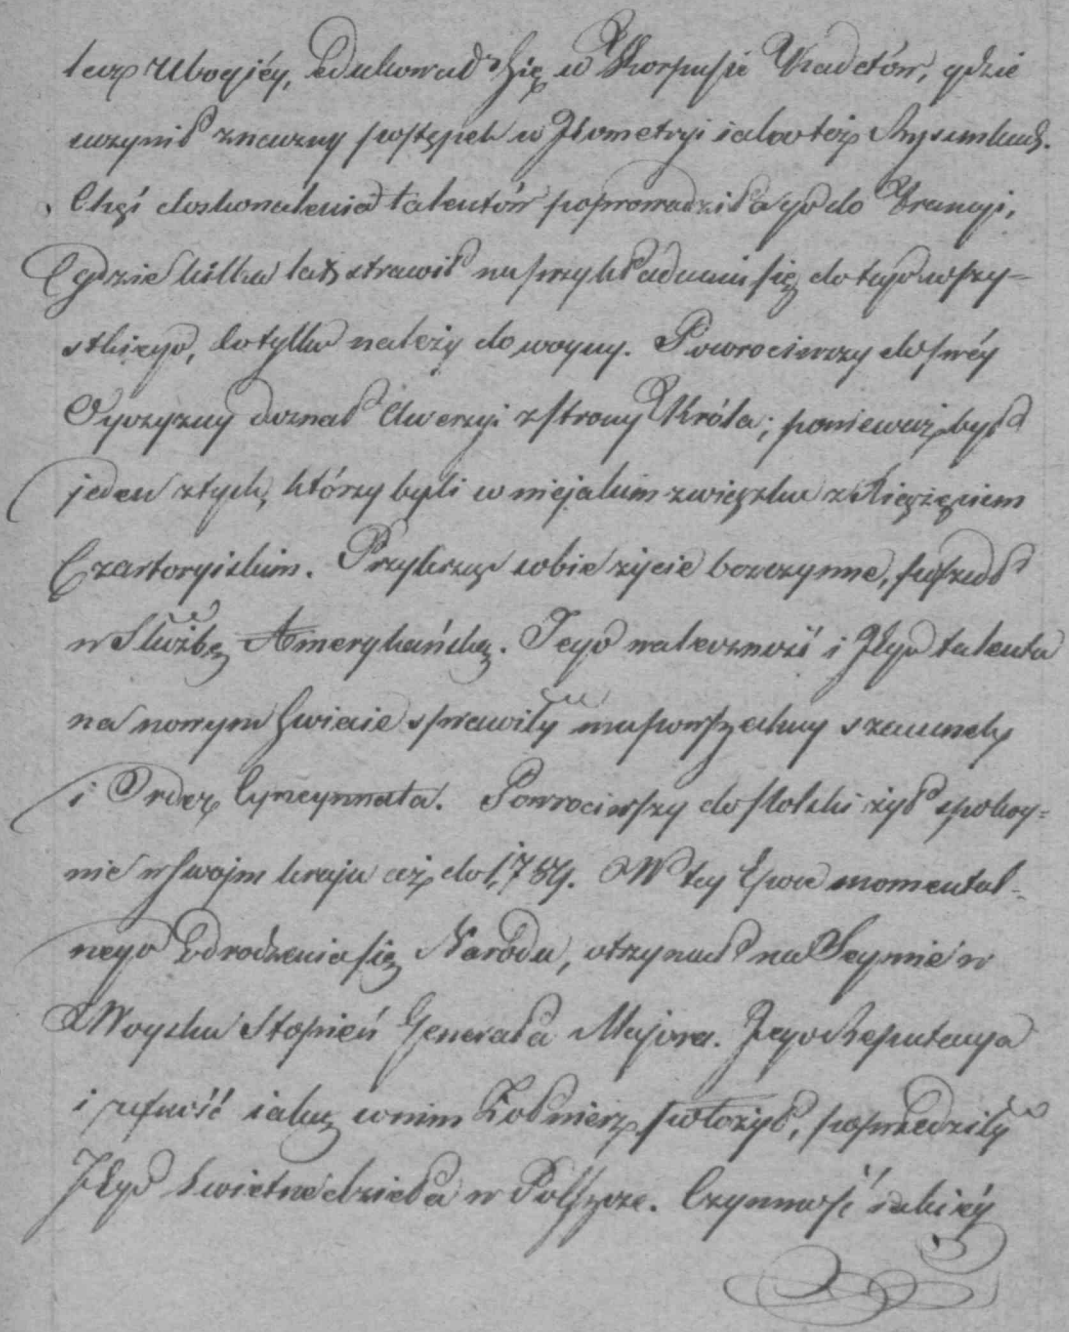 lecz Ubogiéy, Edukował Się w Korpusie Kadetów, gdzie
uczynił znaczny postępek w Jeometryi iako też Rysunkach.
Chęć doskonalenia talentów poprowadziła go do Francyi,
gdzie kilka lat strawił na przykładaniu się do tego wszy-
stkiego, co tylko należy do woyny. Powrociwszy do swéy
Oyczyzny doznał Awersyi z strony Króla; ponieważ był
jeden z tych, którzy byli w niejakim związku z Xiążęciem
Czartoryiskim. Przykrząc sobie życie bezczynne, poszedł
w Służbę Amerykańską. Jego waleczność i Jego talenta
na nowym Swiecie sprawiły mu powszechny szacunek
i Order Cyncynnata. Powrociwszy do Polski żył spokoy-
nie w Swojm kraju aż do 1,789. W tey Epoce momental-
nego Odrodzenia się Narodu, otrzymał na Seymie w
Woysku Stopień Generała Majora. Jego Reputacya
i ufność iaką w nim Żołnierz położył, poprzedziły
Jego świetne dzieła w Polszcze. Czynność iakiéy